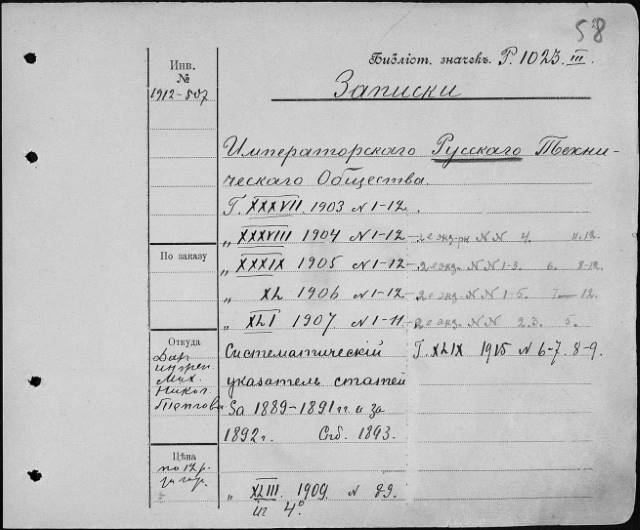 58
Библіот. значекъ. Р. 1023 III.
Инв.
№
1912-507
Записки
Императорскаго Русскаго Техни-
ческаго Общества.
Г. XXXVII. 1903 N 1-12.
„ XXXVIII 1904 N 1-12 - 2е экз-ры N N 4. 11.12.
По заказу
„ XXXIX 1905 N 1-12 - 2е экз. N N 1-3. 6. 8-12.
„ XL 1906 N 1-12 - 2е экз. N N 1-5. 7-12.
„ XLI 1907 N 1-11 - 2е экз. N N 2.3. 5.
Откуда
Дар
Мих.
Никол
Систематическій Г. XLIX 1915 N 6-7. 8-9.
указатель статей
за 1889-1891 гг и за
1892 г. Спб. 1893.
Цѣна
по 12 р.
за год.
„ XLIII. 1909. N 89.
4°